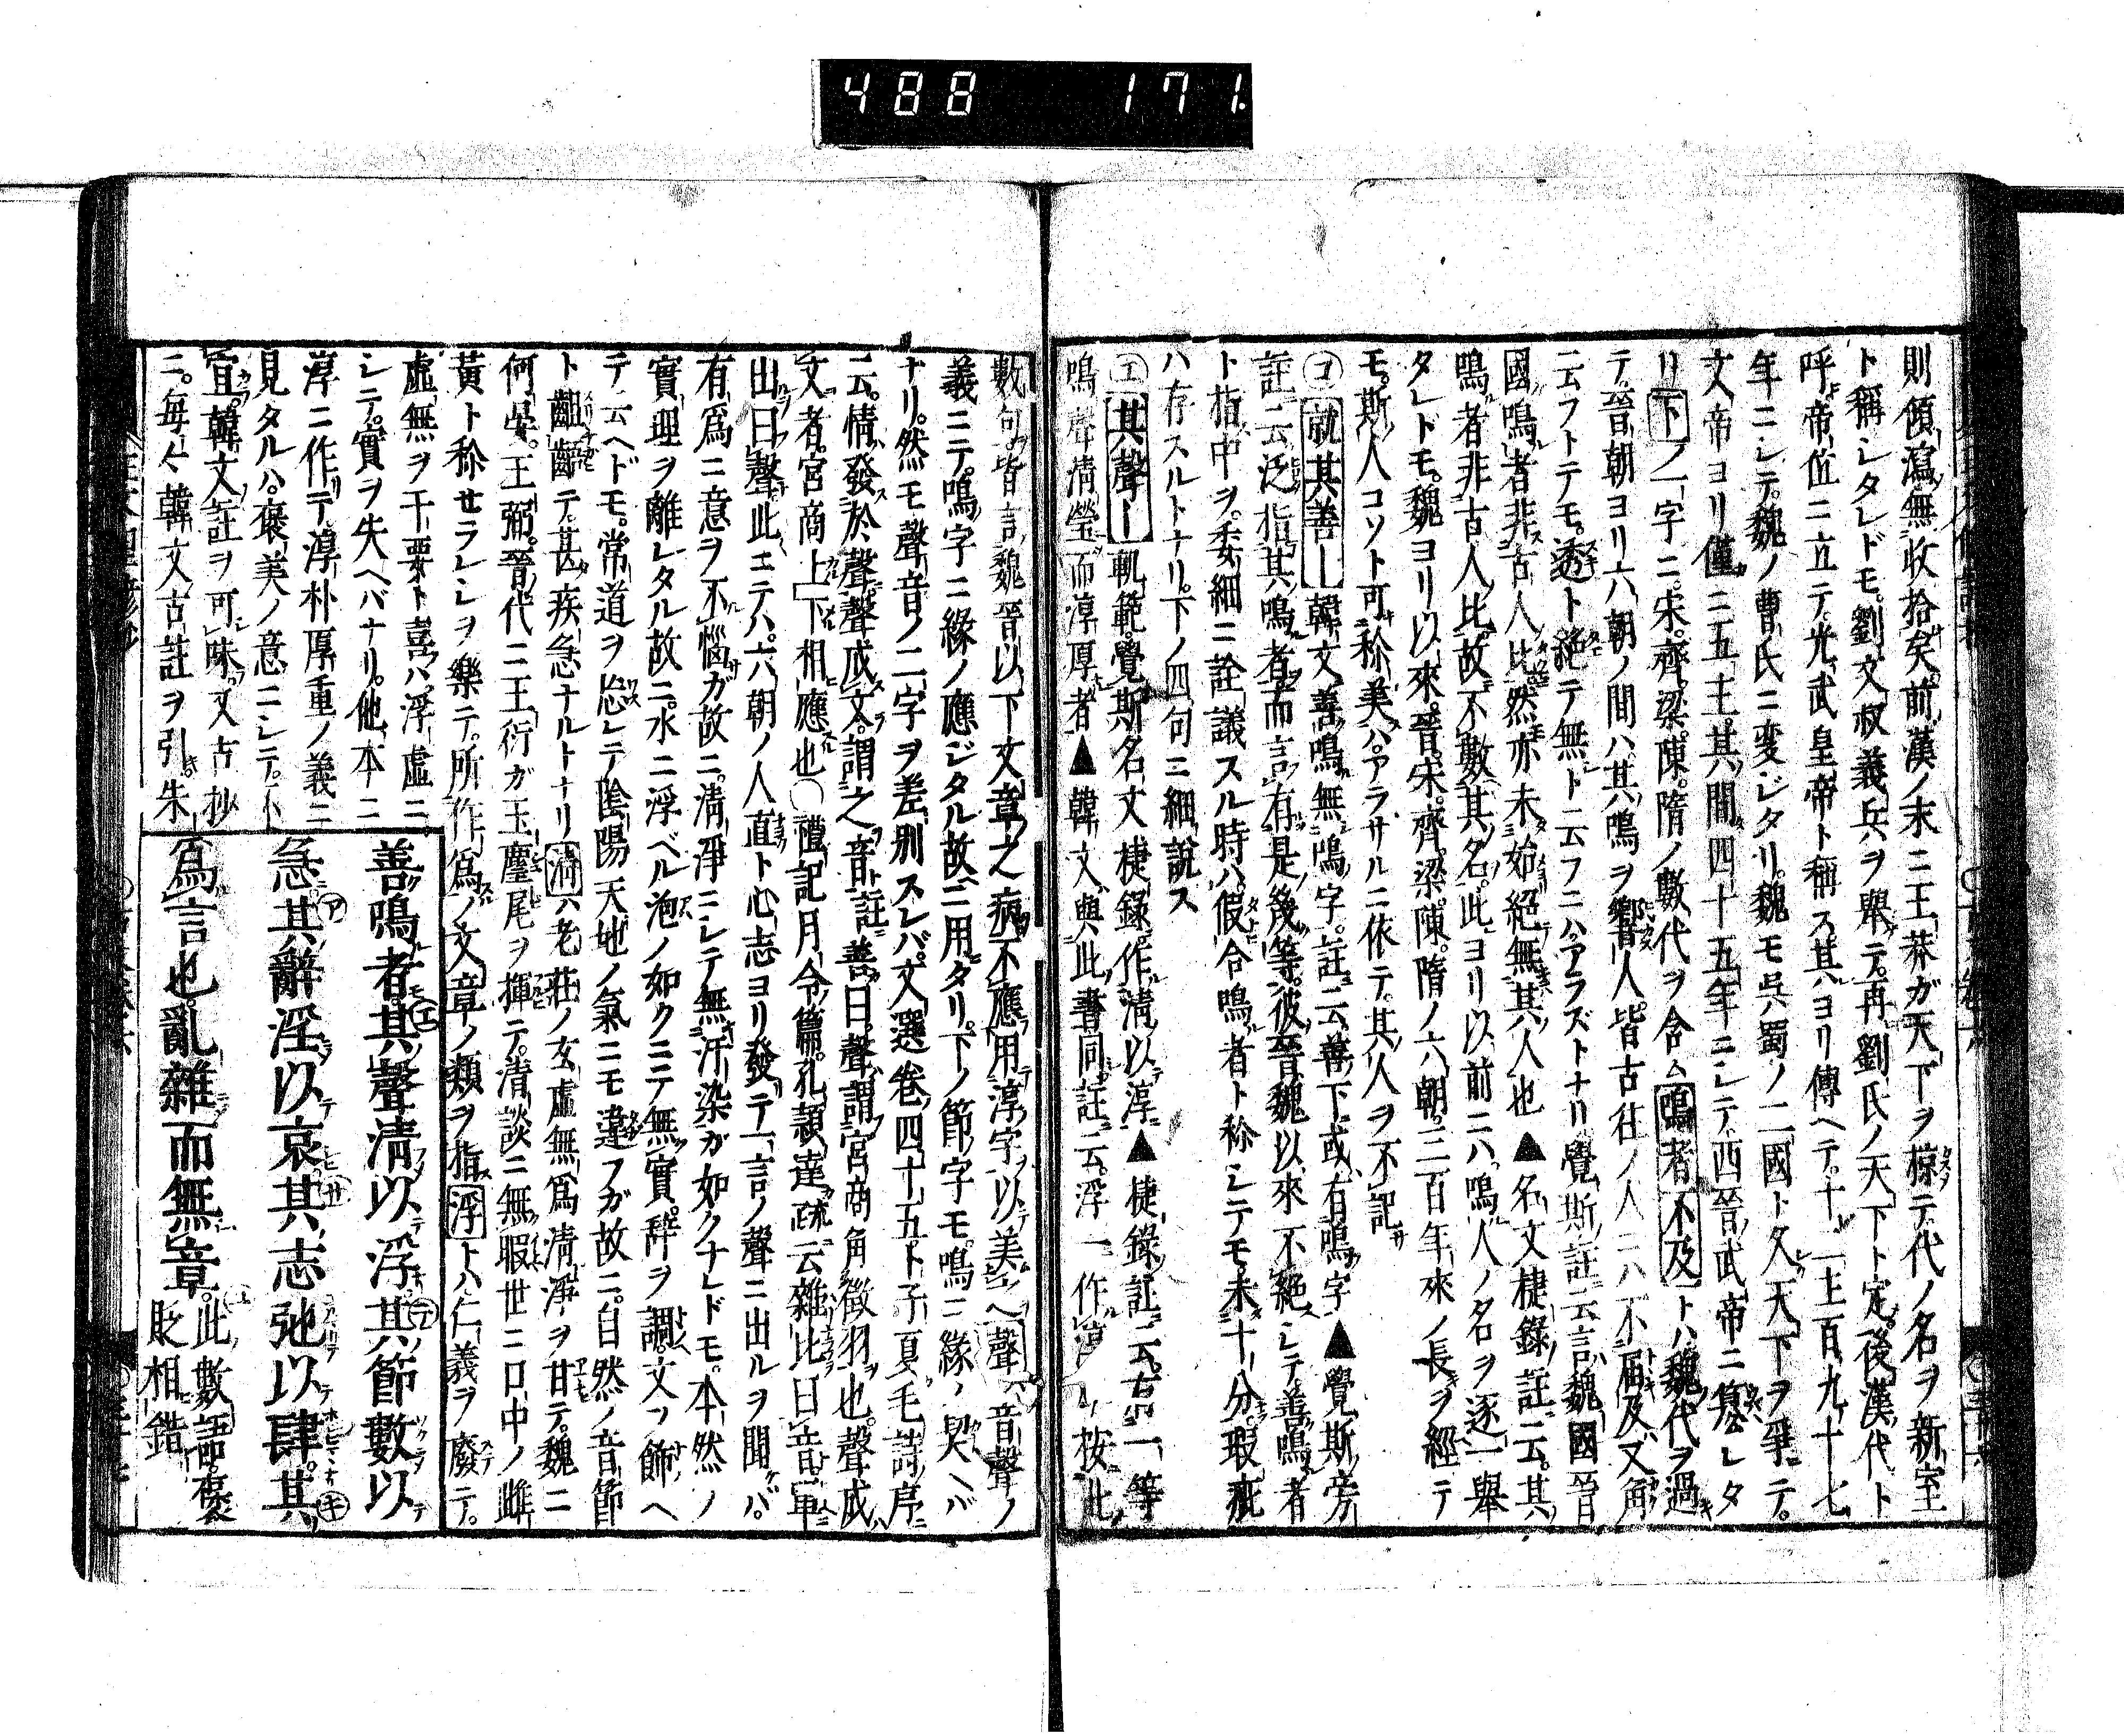 488 171
則傾瀉無收拾矣前漢ノ末ニ王莽ガ天下ヲ掠テ代ノ名ヲ新室
ト稱シタレドモ劉文叔義兵ヲ舉テ再劉氏ノ天下ト定後漢代ト
呼帝位ニ立テ光武皇帝ト稱ス其ヨリ傳ヘテ十二主百九十七
年ニシテ魏ノ曹氏ニ変ジタリ魏モ呉蜀ノ二國ト久天下ヲ爭テ
文帝ヨリ僅ニ五主其間四十五年ニシテ西晉武帝ニ簒レタ
リ下ノ一字ニ宋齊梁陳隋ノ數代ヲ含ム鳴者不及トハ魏代ヲ過
テ晉朝ヨリ六朝ノ間ハ其鳴ヲ響人皆古徃ノ人ニハ不届及又角
云フトテモ透ト絕テ無ト云フニハアラズトナリ覺斯註云言魏國晉
國鳴者非古人比然亦未始絕無其人也▲名文棲錄註云其
鳴者非古人比故不數其名此ヨリ以前ニハ鳴人ノ名ヲ逐一舉
タレトモ魏ヨリ以來晉宋齊梁陳隋ノ六朝三百年來ノ長ヲ經テ
モ斯人コソト可称美ハアラサルニ依テ其人ヲ不記
コ就其善ー韓文善鳴無鳴字註云善下或有鳴字▲覺斯旁
註云泛指其鳴者而言有是幾等彼晉魏以來不絕シテ善鳴者
ト指中ヲ委細ニ詮議スル時ハ假令鳴者ト称シテモ未十分瑕疵
ハ存スルトナリ下ノ四句ニ細說ス
エ其聲ー軌範覺斯名文棲錄作清以淳▲棲錄註云右一等
鳴聲清瑩而淳厚者▲韓文與此書同註云浮一作淳按此
數句皆言魏晉以下文章之病不應用淳字以美ヘ聲ハ音聲ノ
義ニテ鳴字ニ緣ノ應ジタル故ニ用タリ下ノ節字モ鳴ニ緣ノ契ヘバ
ナリ然モ聲音ノ二字ヲ差別スレバ文選卷四十五ト子夏毛詩序
云情發於聲聲成文謂之音註善曰聲謂宮商角徵羽也聲成
文者宮商上下相應也〇禮記月令篇孔頴達疏云雜比曰音單
出曰聲此エテハ六朝ノ人直ト心志ヨリ發テ一言ノ聲ニ出ルヲ聞バ
有爲ニ意ヲ不惱ガ故ニ清淨ニシテ無汙染ガ如クナレドモ本然ノ
實理ヲ離レタル故ニ水ニ浮ベル泡ノ如クニテ無實辭ヲ調文ヲ飾ヘ
テ云ヘドモ常道ヲ忘レテ陰陽天地ノ氣ニモ違フガ故ニ自然ノ音節
ト齟齬テ甚疾急ナルトナリ清ハ老荘ノ玄虛無爲清淨ヲ甘テ魏ニ
何晏王弼晉代ニ王衍ガ玉麈尾ヲ揮テ清談ニ無暇世ニ口中ノ雌
黃ト称セラレシヲ樂テ所作爲ノ文章ノ類ヲ指浮トハ仁義ヲ廢テ
虛無ヲ干要ト喜ハ浮虛ニ
シテ實ヲ失ヘバナリ他本ニ
淳ニ作テ淳朴厚重ノ義ニ
見タルハ褒美ノ意ニシテ不
宜韓文註ヲ可味又古抄
ニ每々韓文古註ヲ引朱
善鳴者其聲清以浮其節數以
急其辭淫以哀其志弛以肆其
爲言也亂雜而無章此數語褒
貶相錯